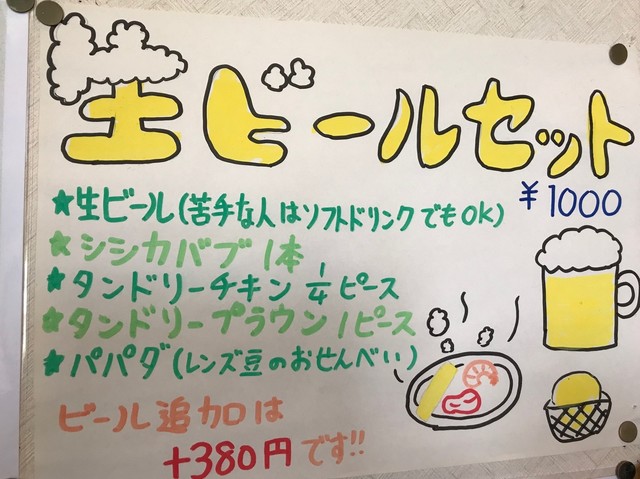 生ビールセット
¥1000
★生ビール(苦手な人はソフトドリンクでもOK)
★シシカバブ1本
★タンドリーチキン1/4ピース
★タンドリープラウン1ピース
★パパダ(レンズ豆のおせんべい)
ビール追加は
+380円です!!